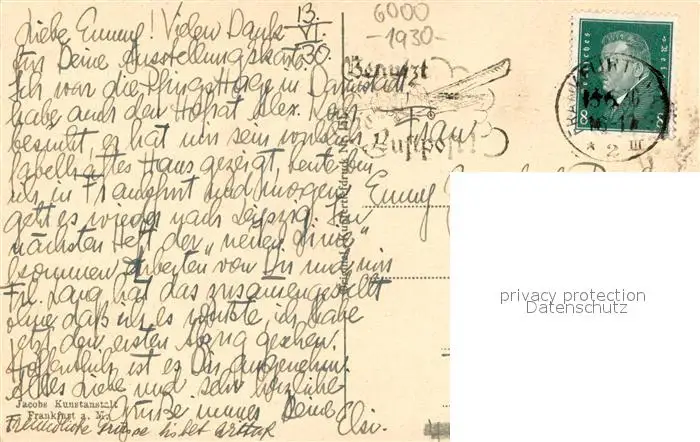 Liebe Emmy! Vielen Dank
13.
VI.
30.
für Deine Ausstellungskarte.
Ich war die Pfingsttage in Darmstadt
habe auch den Hofrat Alex. Koch
besucht, er hat uns sein
fabelhaftes Haus gezeigt, heute bin
ich in Frankfurt und morgen
geht es wieder nach Leipzig. Im
nächsten Heft der „neuen Linie"
kommen Arbeiten von Dir und mir
Frl. Lang hat das zusammengestellt
ohne daß ich es wußte, ich habe
jetzt den ersten Abzug gesehen.
Hoffentlich ist es Dir angenehm.
Alles Liebe und sehr herzliche
Grüße immer Deine
Elsi.
Freundliche Grüsse bittet Arthur
Jacobs Kunstanstalt
Frankfurt a. M.
6000
-1930-
Benutzt
Luftpost!
Deutsches Reich
8
8
FRANKFURT
16-17
* 2
Frau
Emmy
privacy protection
Datenschutz